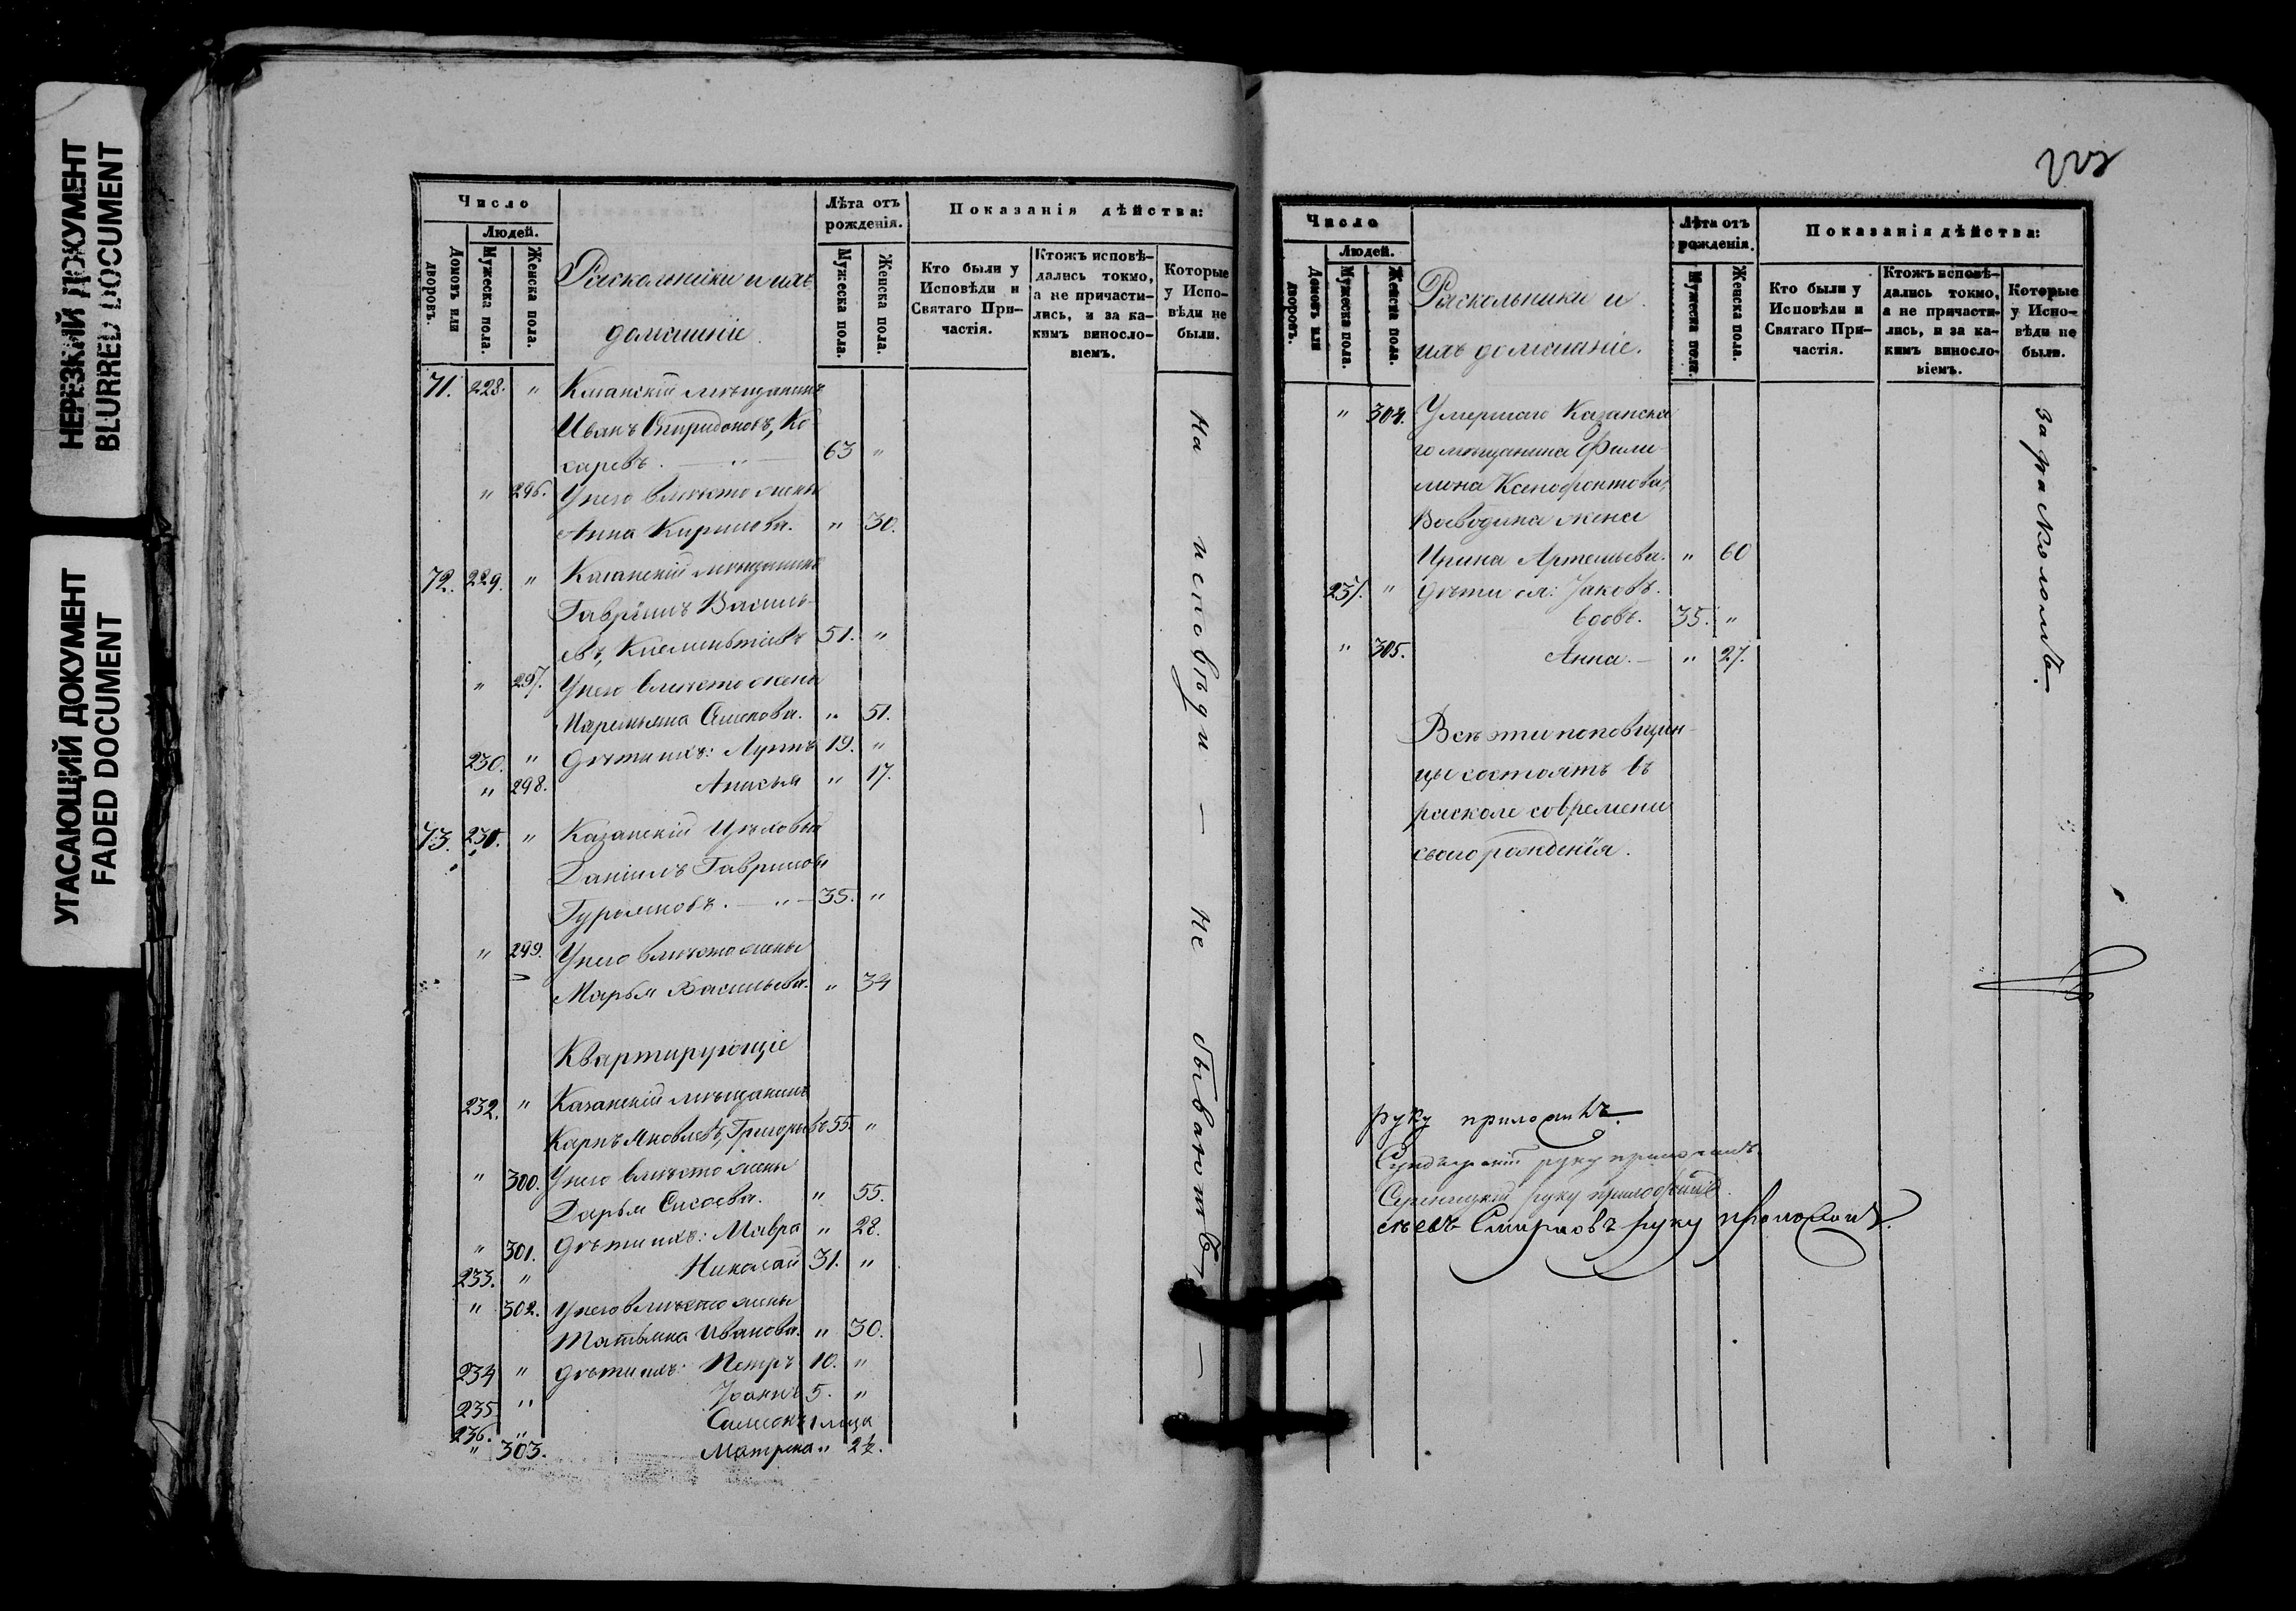 НЕРЕЗКИЙ ДОКУМЕНТ
BLURRED DOCUMENT
УГАСАЮЩИЙ ДОКУМЕНТ
FADED DOCUMENT
Число
Людей.
Домовъ или дворовъ.
Мужеска пола.
Женска пола.
Раскольники и ихъ
домашніе.
Лѣта отъ рожденія.
Мужеска пола.
Женска пола.
Показанія дѣйства:
Кто были у Исповѣди и Святаго Причастія.
Ктожъ исповѣ-
дались токмо,
а не причасти-
лись, и за ка-
кимъ винослo-
віемъ.
Которые
у Испо-
вѣди не
были.
71. 228. " Казанскій мѣщанинъ
Иванъ Спиридоновъ, Ко
саревъ. — " — 63 "
" 296. У него вмѣсто жены
Анна Кирилова. " 30.
72. 229. " Казанскій мѣщанинъ
Гавріилъ Василь-
евъ, 51. "
" 297. У него вмѣсто жены
Маремьяна " 51.
230. " Дѣти ихъ: Луппъ 19. "
" 298. Анисья " 17.
73. 231. " Казанскій Цѣховый
Даніилъ Гавриловъ
— " — 35. "
" 299. У него вмѣсто жены
Марья Васильева. " 34
Квартирующіе
232. " Казанскій мѣщанинъ
Карпъ Яковлевъ, Григорьевъ 55. "
" 300. У него вмѣсто жены
Дарья Сисоева. " 55.
" 301. Дѣти ихъ: Мавра " 28.
233. " Николай 31. "
" 302. У него вмѣсто жены
Татьяна Иванова. " 30.
234 " Дѣти ихъ: Петръ 10. "
235. " Іоаннъ 5. "
236. " Симеонъ 1 мѣсца
" 303. Матрена " 2½.
На исповѣди — не бываютъ —
Число
Людей.
Домовъ или дворовъ.
Мужеска пола.
Женска пола.
Раскольники и
ихъ домашніе.
Лѣта отъ рожденія.
Мужеска пола.
Женска пола.
Показанія дѣйства:
Кто были у
Исповѣди и
Святаго При-
частія.
Ктожъ исповѣ-
дались токмо,
а не причасти-
лись, и за ка-
кимъ винослo-
віемъ.
Которые
у Испо-
вѣди не
были.
" 304. Умершаго Казанска
го мѣщанина Фили-
мона Ксенофонтова,
Воеводина жена
Ирина Артемьева. " 60
237. " Дѣти ея: Іаковъ.
вдовъ. 35. "
" 305. Анна. — " 27.
Всѣ эти поповщин-
цы состоятъ въ
расколе со времени
своего рожденія.
за расколомъ.
руку приложилъ.
руку приложилъ.
руку приложилъ.
Смирновъ руку приложилъ.